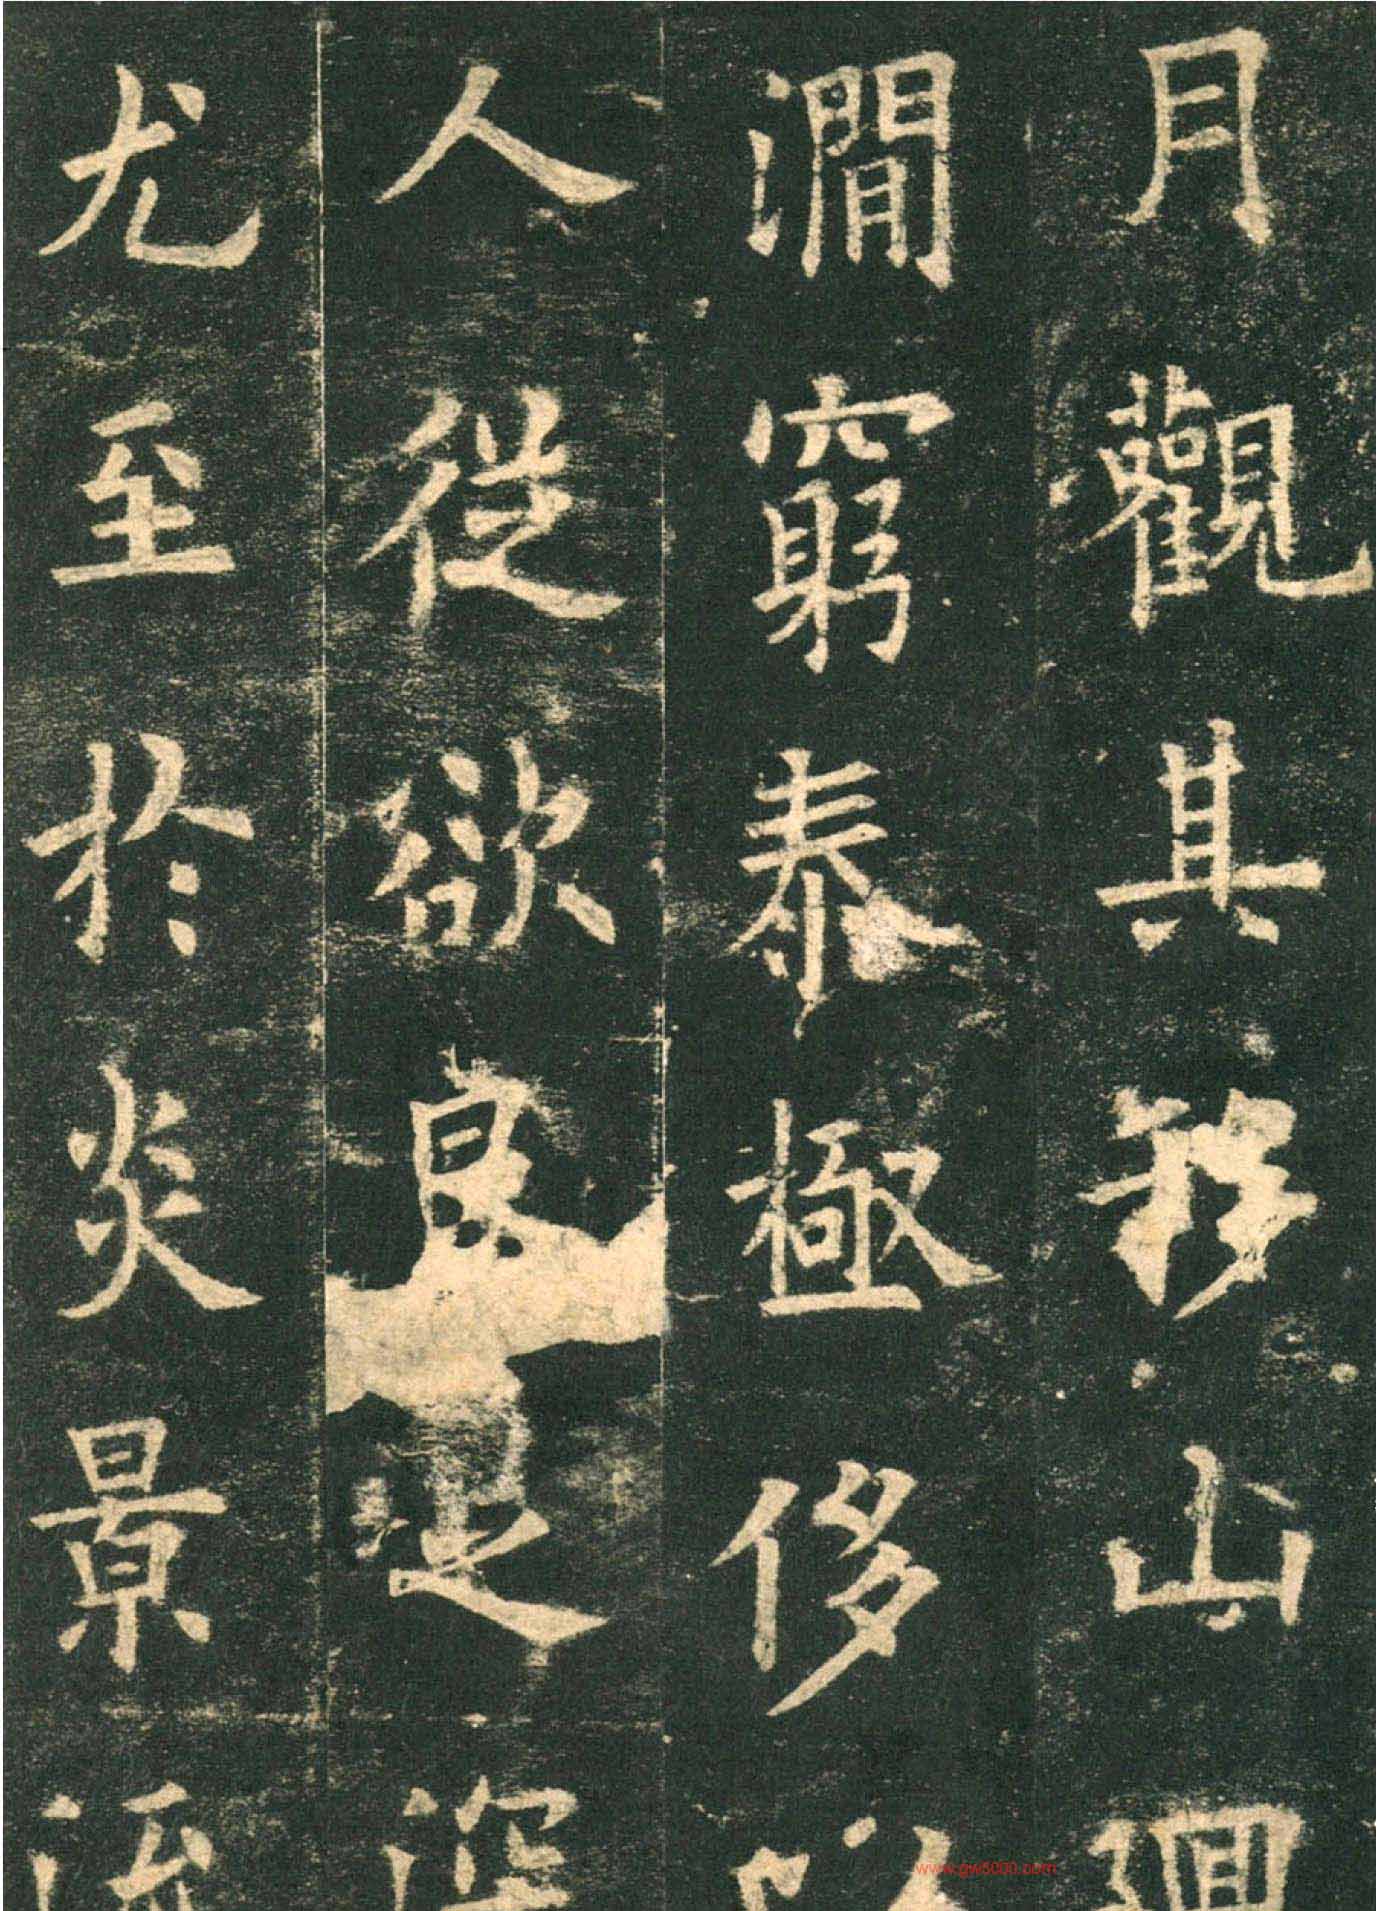 月觀其移山廻
澗窮泰極侈以
人從欲良足深
尤至於炎景流
www.gw5000.com